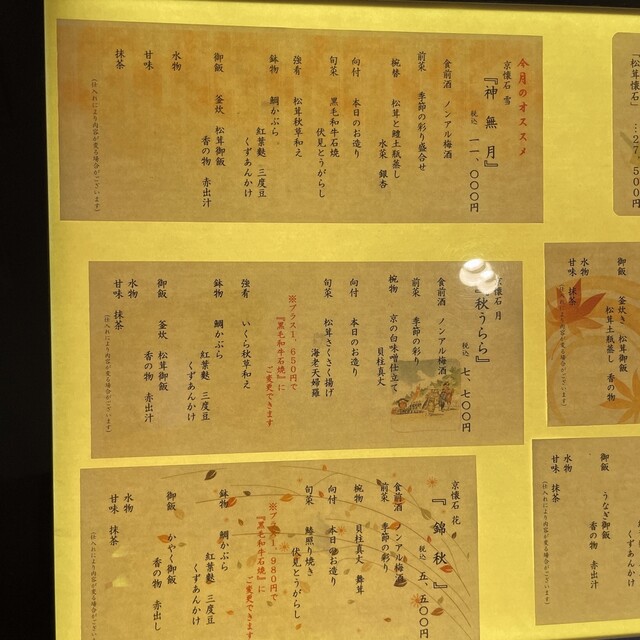 今月のオススメ
京懐石 雪
『神無月』
税込 一一、〇〇〇円
食前酒 ノンアル梅酒
前菜 季節の彩り盛合せ
椀替 松茸と鱧土瓶蒸し
水菜 銀杏
向付 本日のお造り
旬菜 黒毛和牛石焼
伏見とうがらし
強肴 松茸秋草和え
鉢物 鯛かぶら
紅葉麩 三度豆
くずあんかけ
御飯 釜炊 松茸御飯
香の物 赤出汁
水物
甘味
抹茶
(仕入れにより内容が変る場合がございます)
「松茸懐石」…27,500円
京懐石 月
秋うらら』
税込 七、七〇〇円
食前酒 ノンアル梅酒
前菜 季節の彩り
椀物 京の白味噌仕立て
貝柱真丈
向付 本日のお造り
旬菜 松茸さくさく揚げ
海老天婦羅
※プラス1,650円で
『黒毛和牛石焼』に
ご変更できます
強肴 いくら秋草和え
鉢物 鯛かぶら
紅葉麩 三度豆
くずあんかけ
御飯 釜炊 松茸御飯
香の物 赤出汁
水物
甘味 抹茶
(仕入れにより内容が変る場合がございます)
御飯 釜炊き 松茸御飯
松茸土瓶蒸し 香の物
水物
甘味 抹茶
(仕入れにより内容が変る場合がございます)
京懐石 花
『錦秋』
税込 五、五〇〇円
食前酒 ノンアル梅酒
前菜 季節の彩り
椀物 貝柱真丈 舞茸
向付 本日のお造り
旬菜 鰆照り焼き
伏見とうがらし
※プラス1,980円で
『黒毛和牛石焼』に
ご変更できます
鉢物 鯛かぶら
紅葉麩 三度豆
くずあんかけ
御飯 かやく御飯
香の物 赤出し
水物
甘味 抹茶
(仕入れにより内容が変る場合がございます)
くずあんか
御飯 うなぎ御飯
香の物 赤出汁
水物
甘味 抹茶
(仕入れにより内容が変る場合がございます)